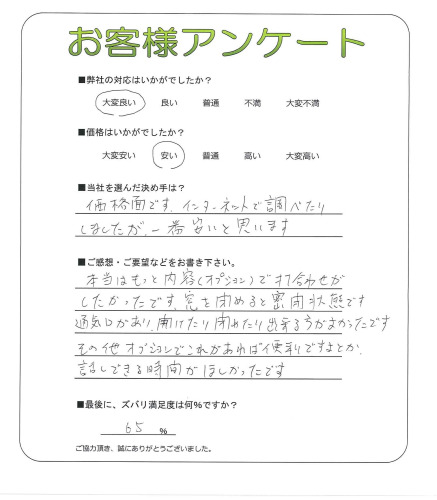 お客様アンケート
■弊社の対応はいかがでしたか？
大変良い 良い 普通 不満 大変不満
■価格はいかがでしたか？
大変安い 安い 普通 高い 大変高い
■当社を選んだ決め手は？
価格面です。インターネットで調べたり
しましたが、一番安いと思います
■ご感想・ご要望などをお書き下さい。
本当はもっと内容(オプション)で打合わせが
したかったです、窓を閉めると密閉状態です
通気口があり、開けたり閉めたり出来る方がよかったです
その他オプションでこれがあれば便利ですよとか、
話しできる時間がほしかったです
■最後に、ズバリ満足度は何％ですか？
65 ％
ご協力頂き、誠にありがとうございました。